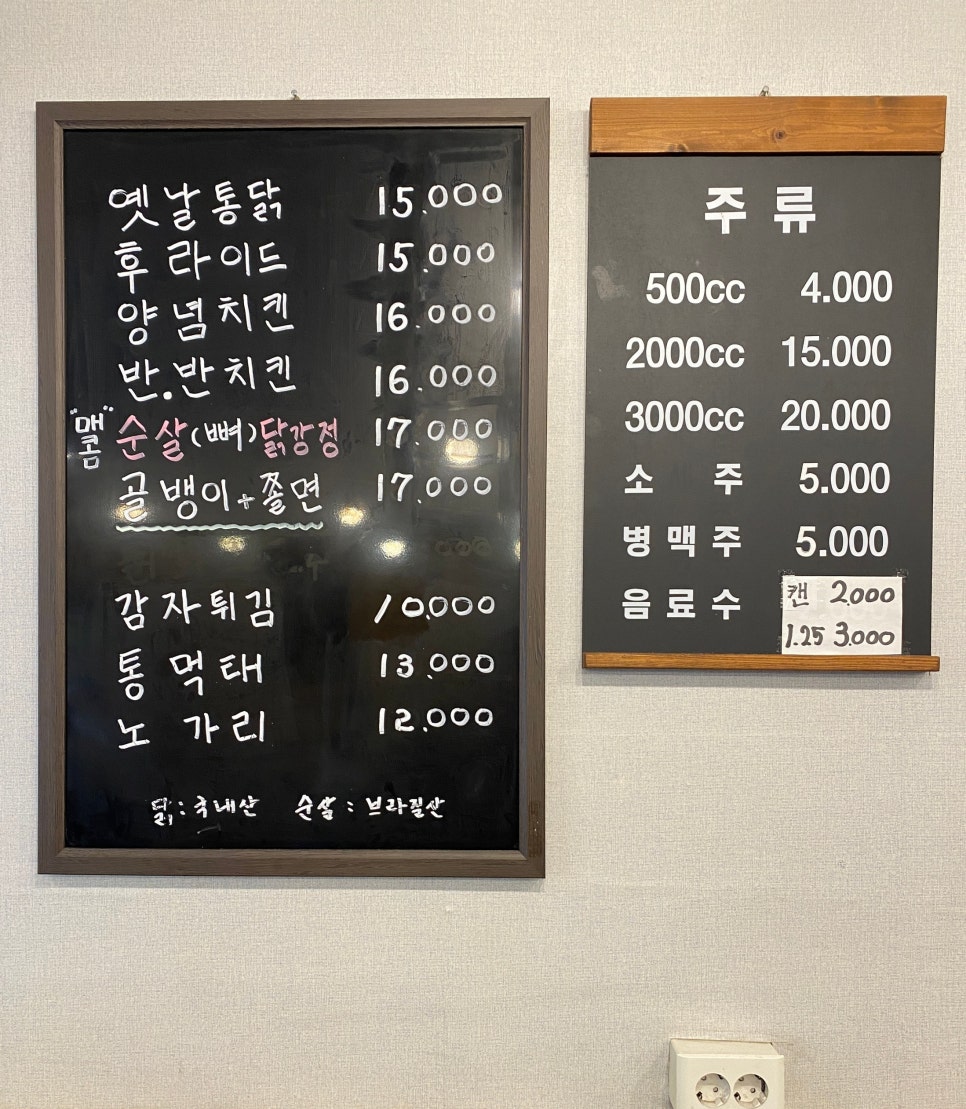 옛날통닭 15.000
후라이드 15.000
양념치킨 16.000
반.반치킨 16.000
"매콤" 순살(뼈)닭강정 17.000
골뱅이+쫄면 17.000
감자튀김 10.000
통먹태 13.000
노가리 12.000
닭:국내산 순살:브라질산
주류
500cc 4.000
2000cc 15.000
3000cc 20.000
소주 5.000
병맥주 5.000
음료수 캔 2.000
1.25 3.000